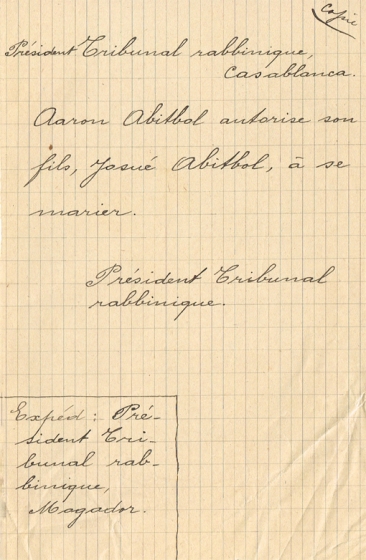 Copie
Président Tribunal rabbinique,
Casablanca.
Aaron Abitbol autorise son
fils, Josué Abitbol, à se
marier.
Président Tribunal
rabbinique.
Expéd : Pré-
sident Tri-
bunal rab-
binique,
Mogador.